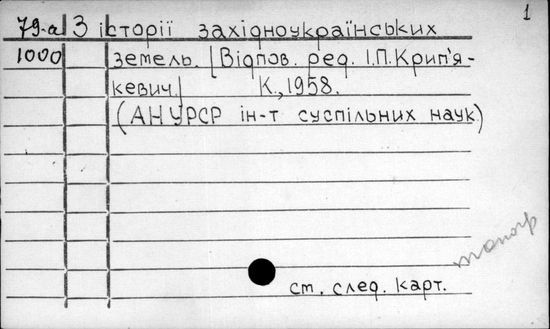 1
79-а З історії західноукраїнських
1000 земель. [Відпов. ред. І.П.Крип'я-
кевич] К., 1958.
(АН УРСР ін-т суспільних наук)
топогр
ст. след. карт.